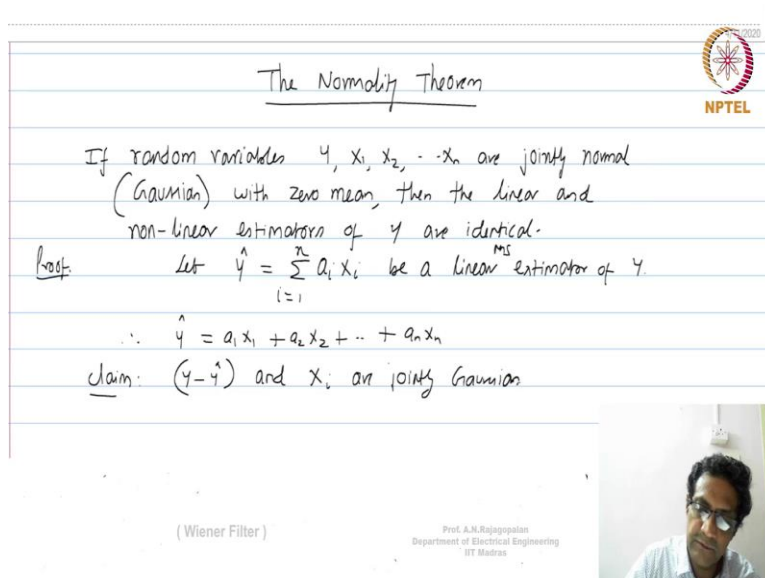 /2020
NPTEL
The Normality Theorem
If random variables y, x1, x2, - - xn are jointly normal
(Gaussian) with zero mean, then the linear and
non-linear estimators of y are identical.
Proof. Let ŷ = n∑i=1 ai xi be a linear MS estimator of y.
∴ ŷ = a1x1 + a2x2 + .. + anxn
Claim: (y-ŷ) and xi are jointly Gaussian
( Wiener Filter )
Prof. A.N.Rajagopalan
Department of Electrical Engineering
IIT Madras